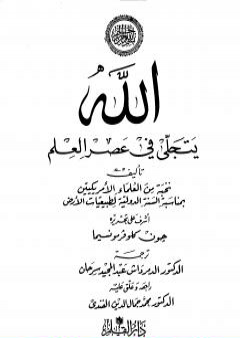 بسم الله الرحمن الرحيم
الله
يتجلى في عصر العلم
تأليف
نخبة من العلماء الأمريكيين
بمناسبة السنة الدولية لطبيعيات الأرض
أشرف على تحريره
جون كلوفر مونسيما
ترجمة
الدكتور الدمرداش عبد المجيد سرحان
راجعه وعلق عليه
الدكتور محمد جمال الدين الفندي
دار القلم